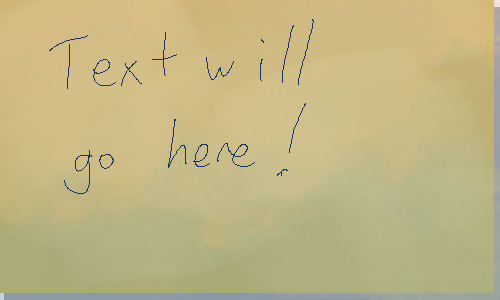 Text will
go here!